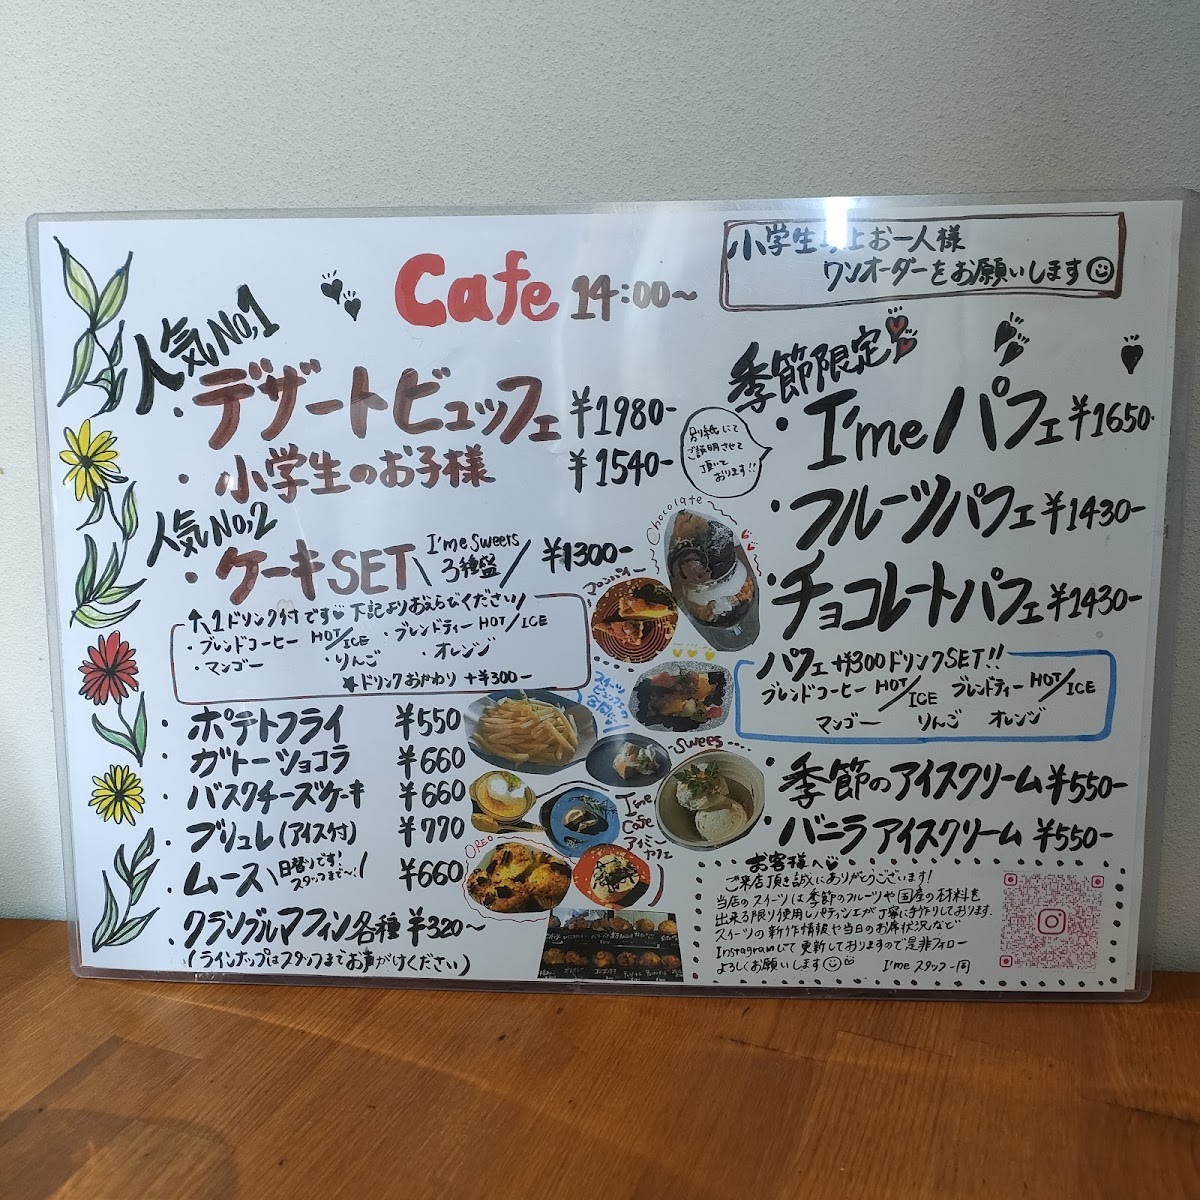 Cafe 14:00~
小学生以上お一人様
ワンオーダーをお願いします
人気No,1
・デザートビュッフェ ¥1980-
・小学生のお子様 ¥1540-
人気No,2
・ケーキSET \I'me sweets 3種盛/ ¥1300-
↑1ドリンク付です♡下記よりおえらびください
・ブレンドコーヒー HOT/ICE ・ブレンドティー HOT/ICE
・マンゴー ・りんご ・オレンジ
★ドリンクおかわり +¥300-
・ポテトフライ ¥550
・ガトーショコラ ¥660
・バスクチーズケーキ ¥660
・ブリュレ(アイス付) ¥770
・ムース \日替りです! スタッフまで〜!/ ¥660
・クランブルマフィン各種 ¥320〜
(ラインナップはスタッフまでお声がけください)
季節限定
・I'meパフェ ¥1650-
別紙にて
ご説明させて
頂いて
おります!!
・フルーツパフェ ¥1430-
・チョコレートパフェ ¥1430-
パフェ+¥300ドリンクSET!!
ブレンドコーヒー HOT/ICE ブレンドティー HOT/ICE
マンゴー りんご オレンジ
・季節のアイスクリーム ¥550-
・バニラアイスクリーム ¥550-
chocolate
sweets
I'me
Cafe
アイミー
カフェ
OREO
お客様へ♡
ご来店頂き誠にありがとうございます!
当店のスイーツは季節のフルーツや国産の材料を
出来る限り使用しパティシエが丁寧に手作りしております.
スイーツの新作情報や当日のお席状況など
Instagramにて更新しておりますので是非フォロー
よろしくお願いします I'me スタッフ一同